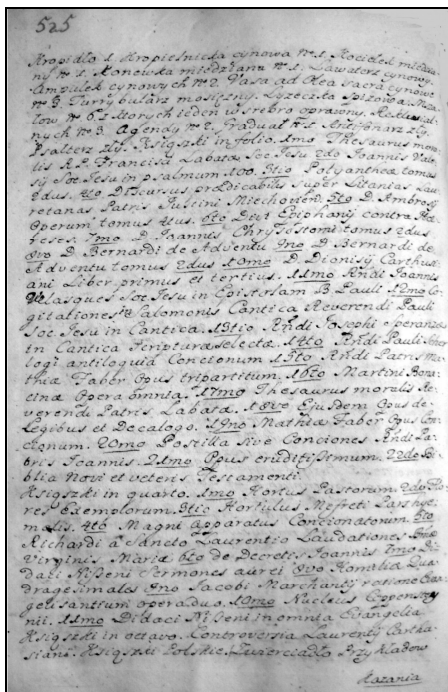 525
Kropidło 1. Kropielnicka cynowa Nro 1. Kociołek miedzia-
ny Nro 1. Konewka miedziana Nro 1. Lawaterz cynowy.
Ampułek cynowych Nro 2. Vasa ad Olea sacra cynowe
Nro 3. Turrybularz mosiężny. Łyżeczka spiżowa. Msza-
łow Nro 6. z ktorych ieden w srebro oprawny. Rekwial-
nych Nro 3. Agendy Nro 2. Graduał Nro 1. Antifonarz zły.
Psałterz zły. Książki in folio. 1mo Thesaurus mora-
lis R.P. Francisci Labatæ Soc Jesu 2do Joannis
Soc. Jesu in psalmum 100. 3tio Polyanthea tomus
2dus. 4to Discursus prædicabiles super Litanias Lau-
retanas Patris Justini Miechovien. 5to D. Ambrosij
Operum tomus 4tus. 6to Divi Epiphanij contra Hæ-
reses. 7mo D. Joannis Chrysostomi tomus 2dus
8vo D. Bernardi de Adventu 9no D. Bernardi de
Adventu tomus 2dus 10mo D. Dionisij Carthusi-
ani Liber primus et tertius. 11mo Rndi Joannis
Velasques Soc Jesu in Epistolam B. Pauli 12mo Co-
gitationes Salomonis Cantica Reverendi Pauli
Soc. Jesu in Cantica. 13tio Rndi Josephi Speranza
in Cantica Scripturæ selectæ 14to Rndi Pauli
antiloquia Concionum 15to Rndi Patris Ma-
thiæ Faber Opus tripartitum. 16to Martini Bona-
cinæ Opera omnia. 17mo Thesaurus moralis Re-
verendi Patris Labatæ. 18vo Ejusdem Opus de
Legibus et Decalogo. 19no Mathiæ Faber Opus Con-
cionum. 20mo Postilla sive Conciones Rndi Pa-
tris Joannis. 21mo Opus eruditissimum. 22do Bi-
blia Novi et veteris Testamenti.
Książki in quarto. 1mo Hortus Pastorum. 2do Flo-
res Exemplorum. 3tio Hortulus Mefreti Pars hye-
malis. 4to Magni Apparatus Concionatorum. 5to
Richardi a Sancto Laurentio Laudationes
Virginis Mariæ 6to de Decretis Joannis 7mo Di-
daci Nisseni Sermones aurei 8vo Homilia Qua-
dragesimales 9no Jacobi Marchantij rationale Evan-
gelisantium opera duo. 10mo Nucleus Coppensteij-
nii. 11mo Didaci Nisseni in omnia Evangelia
Książki in octavo. Controversia Laurenty Cartha-
siani. Książki Polskie. Zwierciadło Przykładow
Kazania